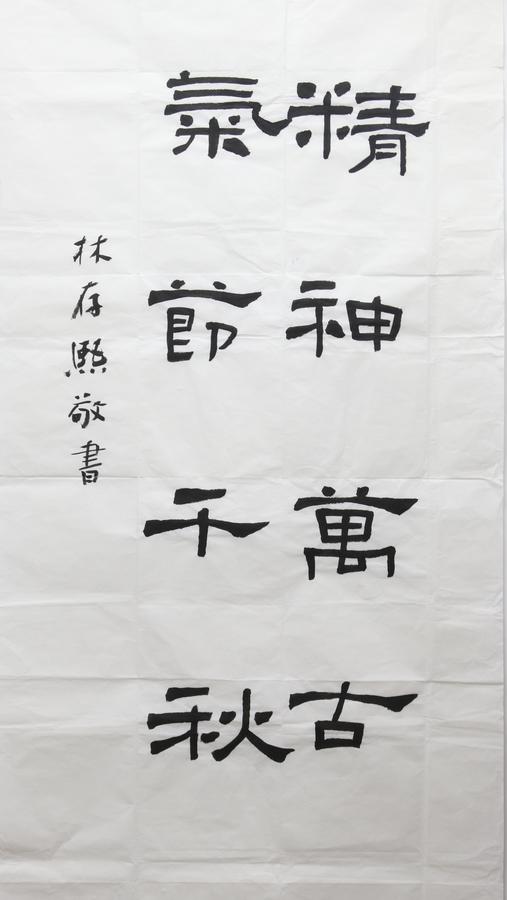 精神萬古
氣節千秋
林存熙敬書